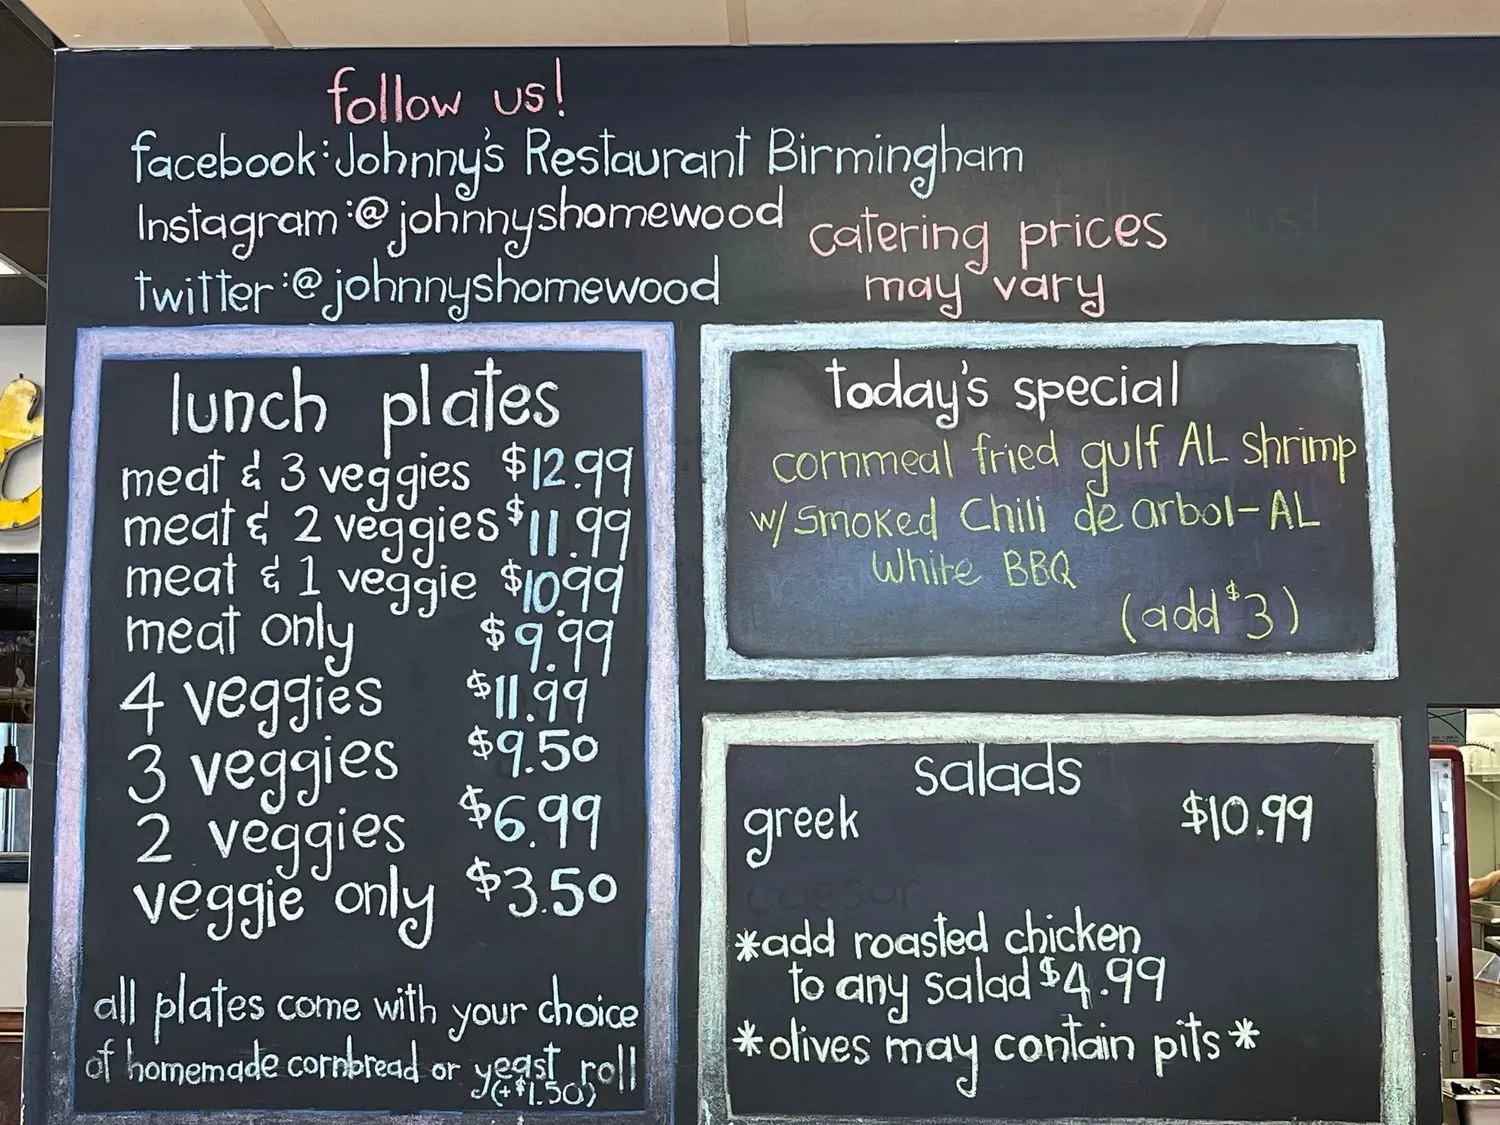 follow us!
facebook: Johnny's Restaurant Birmingham
Instagram: @johnnyshomewood
twitter: @johnnyshomewood
catering prices
may vary
lunch plates
meat & 3 veggies $12.99
meat & 2 veggies $11.99
meat & 1 veggie $10.99
meat only $9.99
4 veggies $11.99
3 veggies $9.50
2 veggies $6.99
veggie only $3.50
all plates come with your choice
of homemade cornbread or yeast roll
(+$1.50)
today's special
cornmeal fried gulf AL shrimp
w/ smoked Chili de arbol-AL
White BBQ
(add $3)
salads
greek $10.99
caesar
*add roasted chicken
to any salad $4.99
*olives may contain pits*